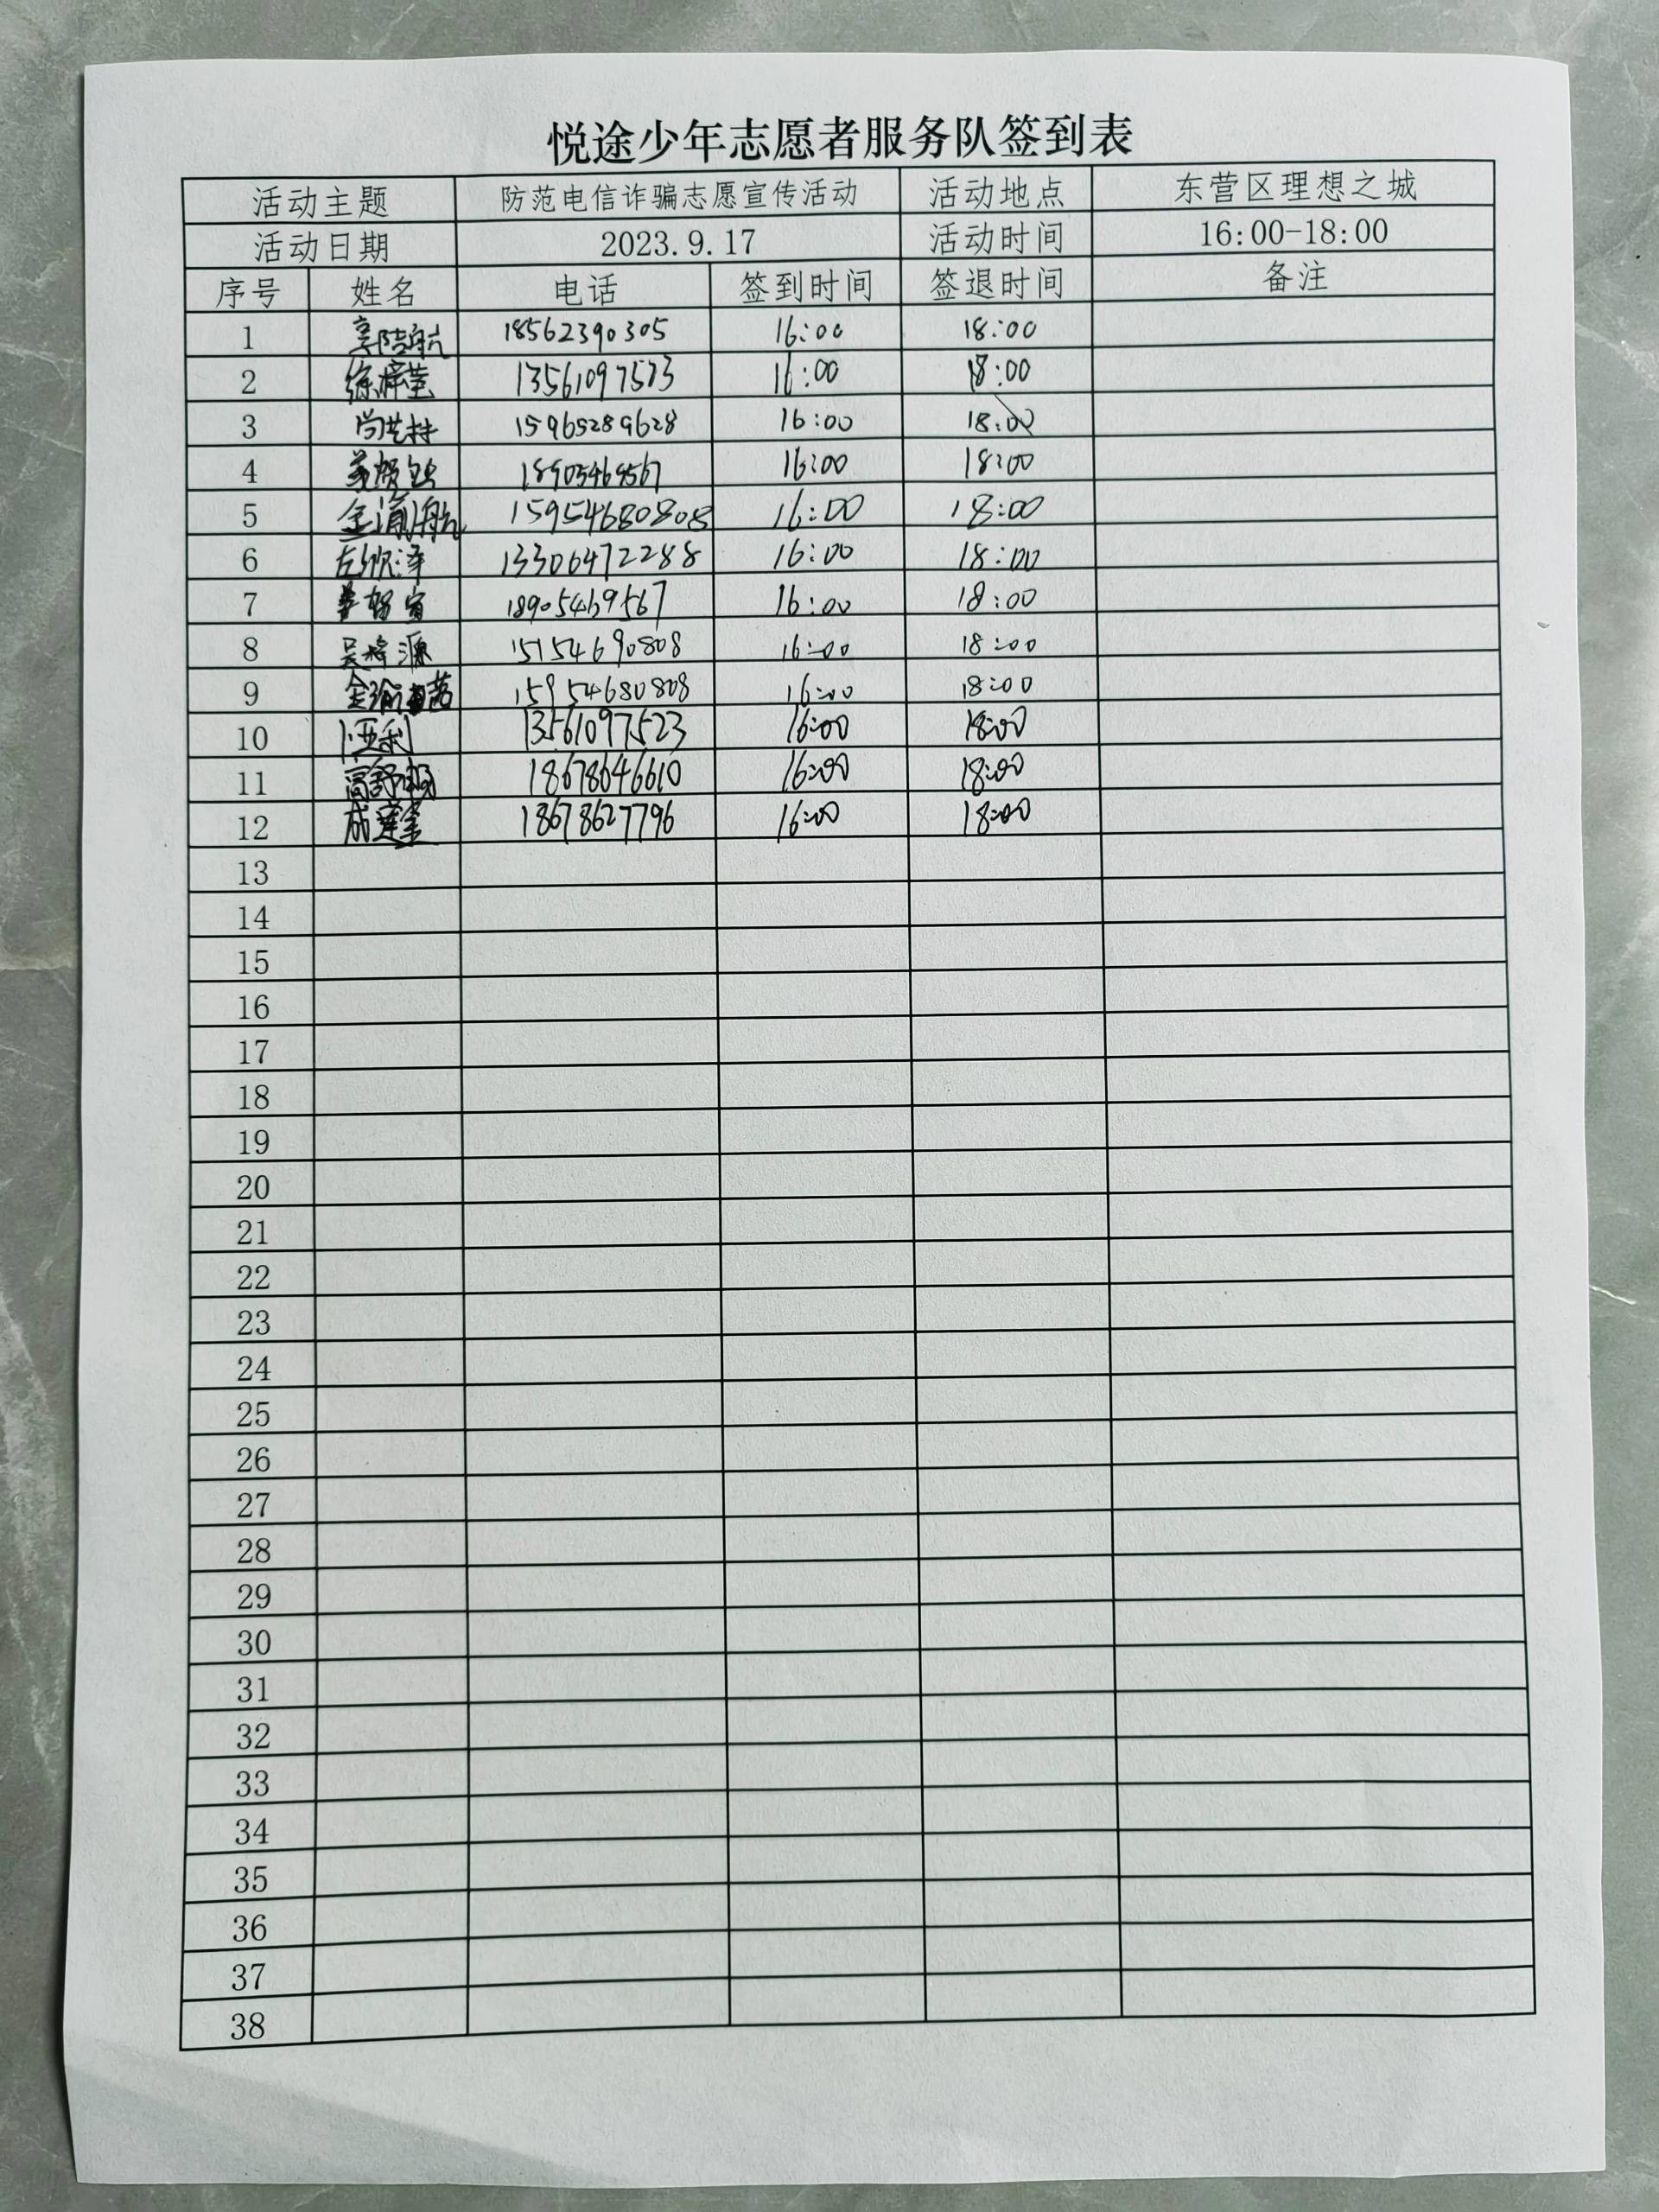 悦途少年志愿者服务队签到表
活动主题 防范电信诈骗志愿宣传活动 活动地点 东营区理想之城
活动日期 2023.9.17 活动时间 16:00-18:00
序号 姓名 电话 签到时间 签退时间 备注
1 18562390305 16:00 18:00
2 16:00 18:00
3 15965289628 16:00 18:00
4 16:00 18:00
5 15954680808 16:00 18:00
6 13306472288 16:00 18:00
7 18905469567 16:00 18:00
8 15154690808 16:00 18:00
9 15954680808 16:00 18:00
10 13561097523 16:00 18:00
11 18678646610 16:00 18:00
12 18678627796 16:00 18:00
13
14
15
16
17
18
19
20
21
22
23
24
25
26
27
28
29
30
31
32
33
34
35
36
37
38